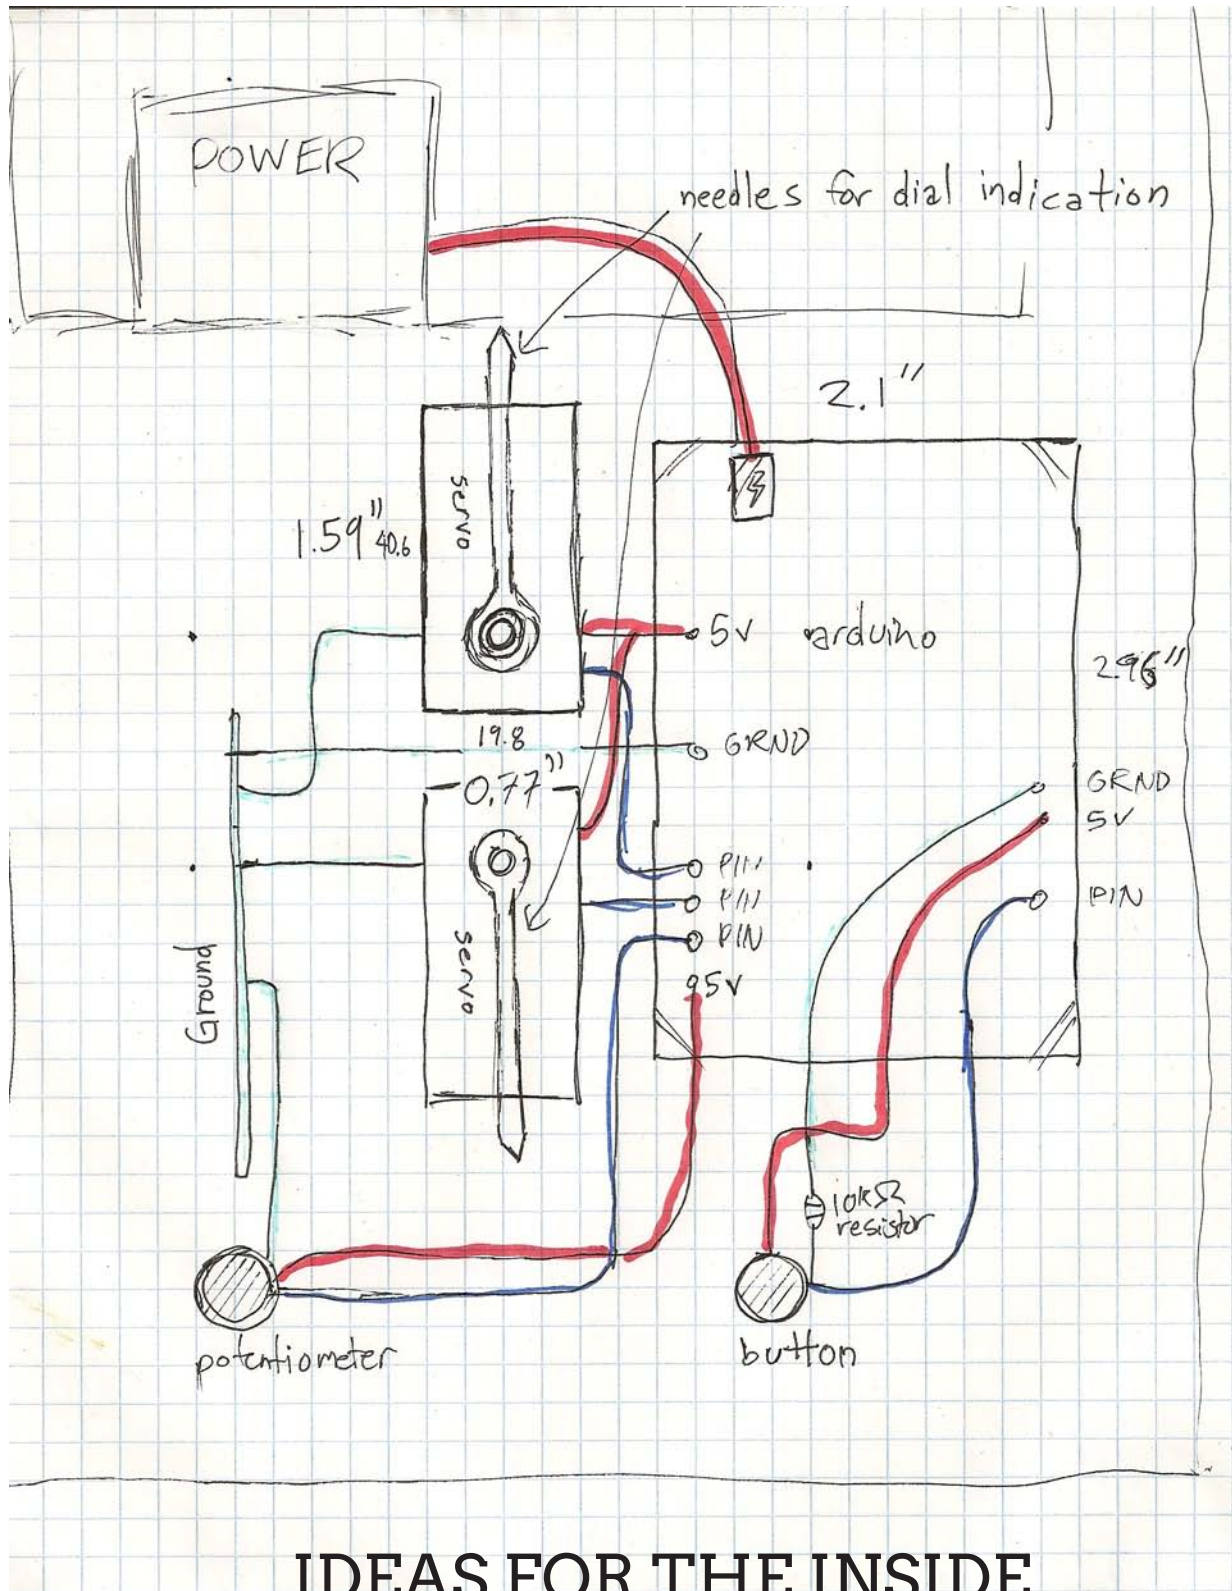 POWER
needles for dial indication
2.1"
servo
1.59" 40.6
5V
arduino
2.96"
19.8
GRND
0.77"
GRND
5V
PIN
PIN
PIN
PIN
servo
Ground
5V
10kΩ
resistor
potentiometer
button
IDEAS FOR THE INSIDE